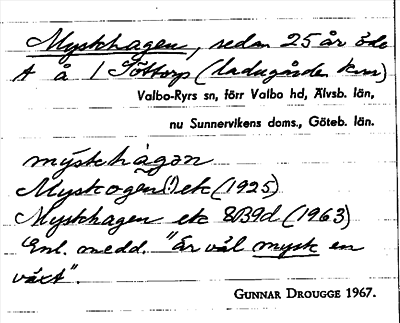 Myskhagen, sedan 25 år öde
t å 1 Töttorp (ladugården kvar)
Valbo-Ryrs sn, förr Valbo hd, Älvsb. län,
nu Sunnervikens doms., Göteb. län.
mỳskhàgən
Myskogen(!) ek (1925)
Myskhagen ek 8B9d (1963)
Enl. medd. "är väl mysk en
växt".
GUNNAR DROUGGE 1967.